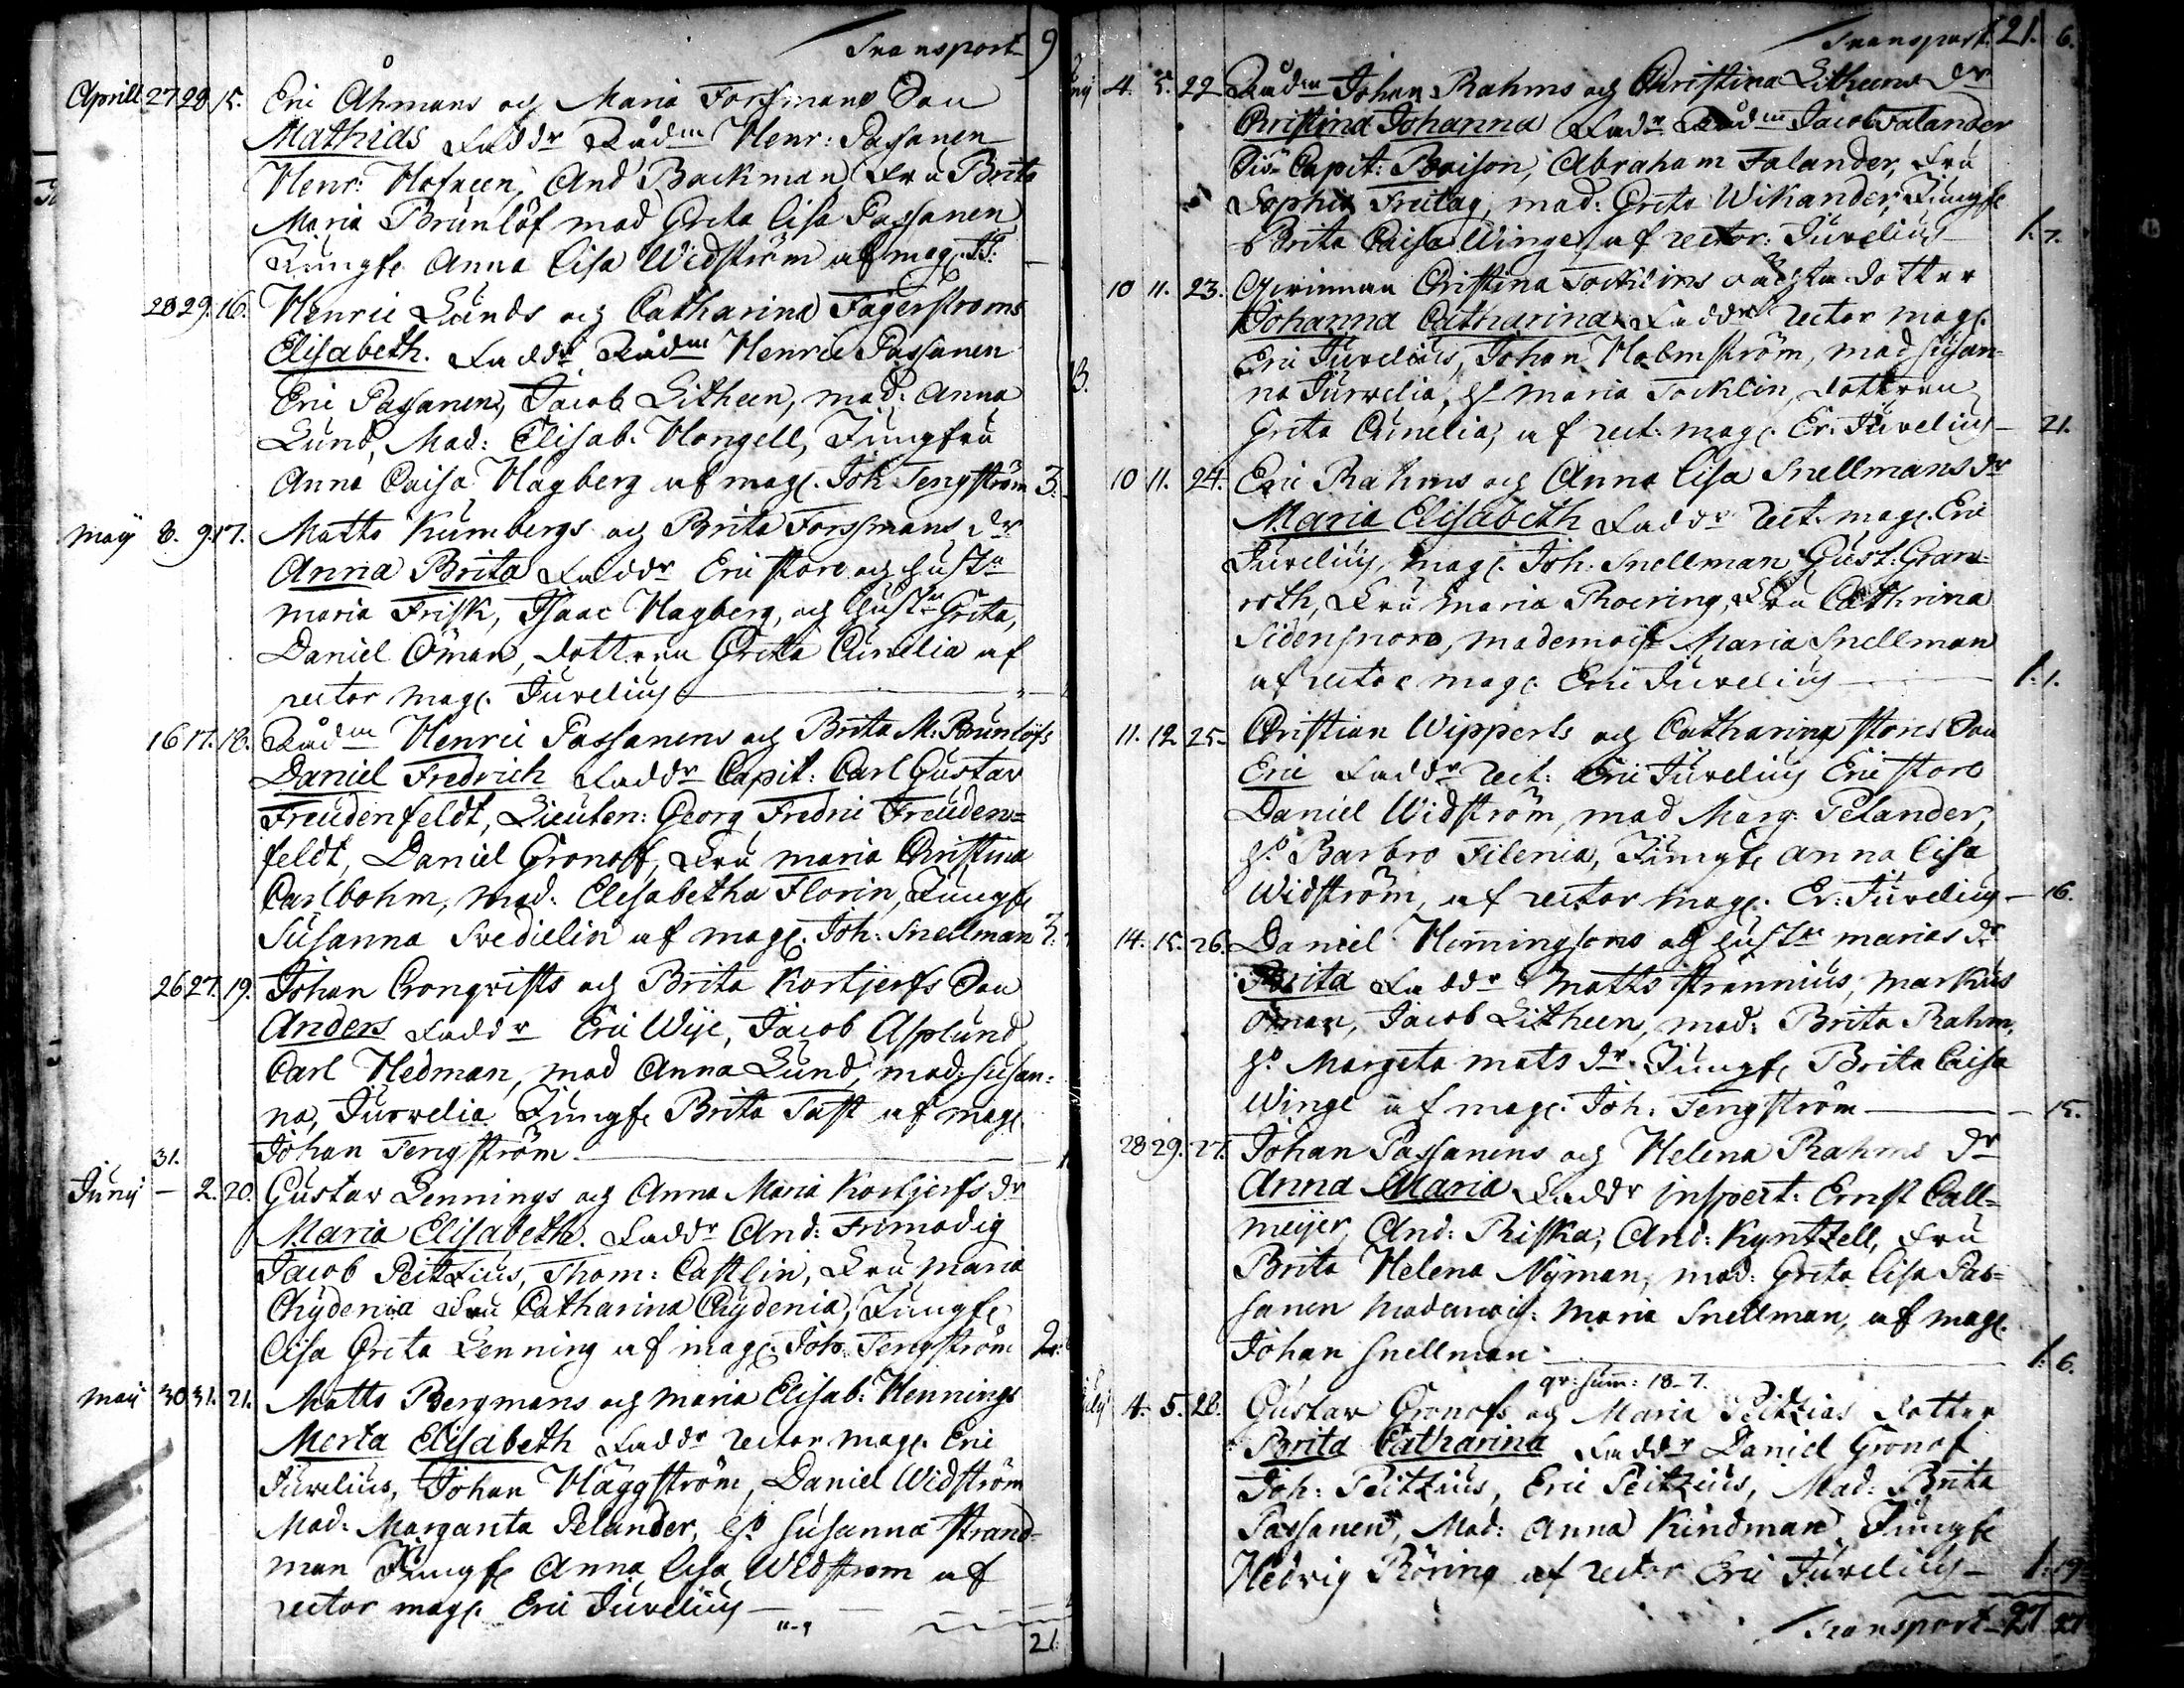 Transport 9
Aprill 27 28 15. Eric Åhmans och Maria Forssmans Son
Mathias Faddr Rådm Henr: Passanen
Henr: Hofneen, And Backman Fru Brita
Maria Brunlöf mad Greta Lisa Passanen
Jungfr Anna Lisa Widström af mag. JT:
28 29. 16. Henric Lunds och Catharina Fagerstroms
Elisabeth. Faddr Rådm Henric Passanen
Eric Passanen, Jacob Litheen, mad: Anna
Lund, Mad: Elisab. Hongell, Jungfru
Anna Caisa Hagberg af mag. Joh Tengström 3.
Maij 8. 9. 17. Matts Kumbergs och Brita Forssmans dr
Anna Brita Faddr Eric Store och hustr
Maria Frisk, Isaac Hagberg, och Hustr Greta,
Daniel Öman, dottren Greta Cunelia af
rector mag. Juvelius
16 17. 18. Rådm Henric Passanens och Brita M: Brunlöfs
Daniel Fredrich Faddr Capit: Carl Gustav
Freudenfeldt, Lieuten: Georg Fredric Freuden=
feldt, Daniel Gronoff, Fru Maria Christina
Carlbohm, mad: Elisabetha Florin, Jungfr
Susanna Svedielin af mag. Joh: Snellman 3.
26 27. 19. Johan Cronqvists och Brita Kortjerfs Son
Anders Faddr Eric Wije, Jacob Asplund
Carl Hedman, mad Anna Lund, mad: Susan=
na, Jurvelia Jungfr Brita Tast af mag.
Johan Tengström.
31.
Junij — 2. 20. Gustav Lennings och Anna Maria Kortjerfs dr
Maria Elisabeth. Faddr And: Frimodig
Jacob Peitzius, Thom: Castlin, Fru Maria
Chydenia Fru Catharina Chydenia, Jungfr
Lisa Greta Lenning af mag. Joh. Tengström 2.
Maij 30 31. 21. Matts Bergmans och Maria Elisab: Hennings
Merta Elisabeth Faddr rector mag. Eric
Juvelius, Johan Häggström, Daniel Widström
Mad: Margareta Pelander, hs Susanna Strand=
man Jungfr Anna Lisa Widström af
rector mag. Eric Juvelius
21.
Transport 21. 6.
4. 5. 22 Rådm Johan Rahms och Christina Litheens dr
Christina Johanna Fadr Rådm Jacob Falander
Capit: Boison, Abraham Falander, Fru
Sophia Freitag, mad: Greta Wikander, Jungfr
Brita Caisa Winge, af rector: Juvelius 1. 7.
10 11. 23. Christina Tocklins oächta dotter
Johanna Catharina Faddr Rector mag.
Eric Juvelius, Johan Holmström, mad Susan=
na Jurvelia, hs Maria Tocklin, dottren
Greta Cunelia, af rect: mag. Er: Juvelius — 21.
10 11. 24. Eric Rahms och Anna Lisa Snellmans dr
Maria Elisabeth Faddr rect. mag. Eric
Juvelius, mag. Joh: Snellman Gust: Gran=
roth, Fru Maria Rhoering, Fru Cathrina
Sidensnore, mademoise Maria Snellman
af rector mag. Eric Juvelius 1. 1.
11. 12 25. Christian Wipperts och Catharina Stores Son
Eric Faddr rect: Eric Juvelius Eric Store
Daniel Widström, mad Marg. Pelander,
hs Barbro Filenia, Jungfr Anna Lisa
Widström, af rector mag. Er: Juvelius — 16.
14. 15. 26. Daniel Hemingsons och hustr Marias dr
Brita Faddr Matts Strannius, Markus
Öman, Jacob Litheen, mad: Brita Rahm,
hs Margeta Mats dr Jungfr Brita Caisa
Winge af mag. Joh: Tengström — 15.
28 29. 27. Johan Passanens och Helena Rahms dr
Anna Maria Faddr Inspect: Ernst Call=
meijer, And: Riska, And: Kyntzell, Fru
Brita Helena Nÿman, mad: Greta Lisa Pas=
sanen Mademois: Maria Snellman, af mag.
Johan Snellman 1. 6.
qv: sum: 18-7.
4. 5. 28. Gustav Gronofs och Maria Peitzias dotter
Brita Catharina Faddr Daniel Gronof
Joh: Peitzius, Eric Peitzius, Mad: Brita
Passanen, Mad: Anna Kindman Jungfr
Hedvig Röring af rector Eric Juvelius — 1: 19
Transport 27 27